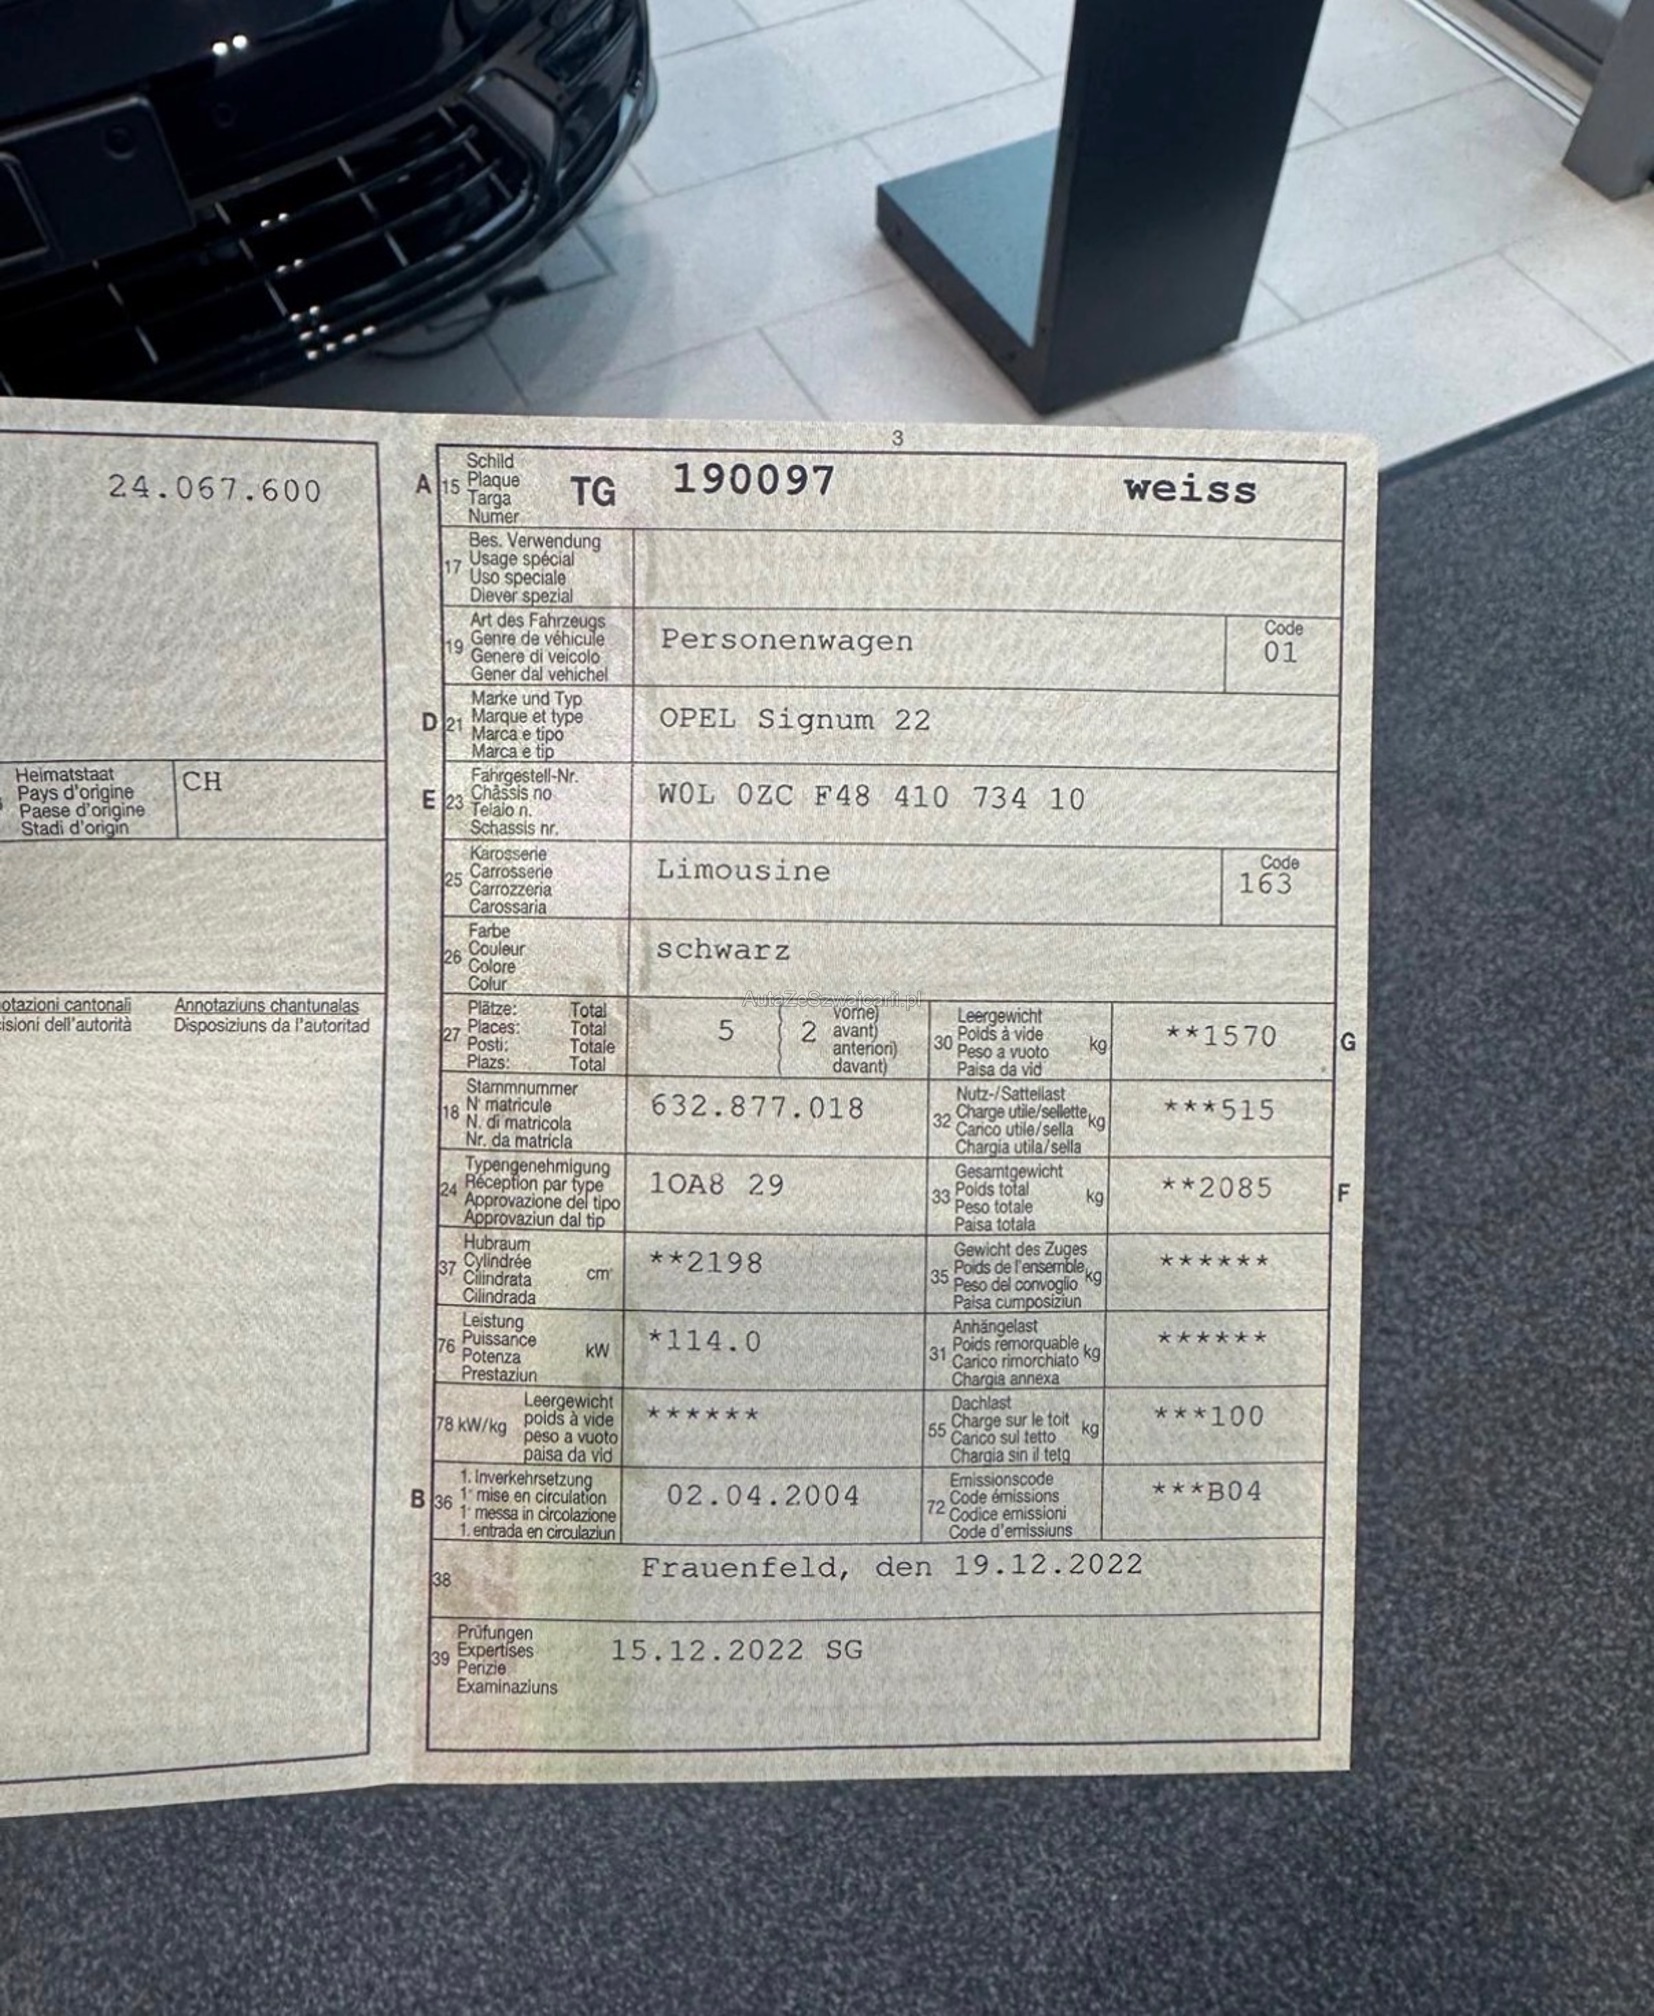 3
24.067.600
A 15 Schild Plaque Targa Numer TG 190097 weiss
17 Bes. Verwendung
Usage spécial
Uso speciale
Diever spezial
19 Art des Fahrzeugs
Genre de véhicule
Genere di veicolo
Gener dal vehichel
Personenwagen
Code
01
D 21 Marke und Typ
Marque et type
Marca e tipo
Marca e tip
OPEL Signum 22
Heimatstaat
Pays d'origine
Paese d'origine
Stadi d'origin
CH
E 23 Fahrgestell-Nr.
Châssis no
Telaio n.
Schassis nr.
W0L 0ZC F48 410 734 10
25 Karosserie
Carrosserie
Carrozzeria
Carossaria
Limousine
Code
163
26 Farbe
Couleur
Colore
Colur
schwarz
AutaZeSzwajcarii.pl
otazioni cantonali Annotaziuns chantunalas
isioni dell'autorità Disposiziuns da l'autoritad
27 Plätze: Total
Places: Total
Posti: Totale
Plazs: Total
5
2 vorne)
avant)
anteriori)
davant)
30 Leergewicht
Poids à vide
Peso a vuoto
Paisa da vid
kg
**1570
G
18 Stammnummer
N° matricule
N. di matricola
Nr. da matricla
632.877.018
32 Nutz-/Sattellast
Charge utile/sellette
Carico utile/sella
Chargia utila/sella
kg
***515
24 Typengenehmigung
Réception par type
Approvazione del tipo
Approvaziun dal tip
1OA8 29
33 Gesamtgewicht
Poids total
Peso totale
Paisa totala
kg
**2085
F
37 Hubraum
Cylindrée
Cilindrata
Cilindrada
cm³
**2198
35 Gewicht des Zuges
Poids de l'ensemble
Peso del convoglio
Paisa cumposiziun
kg
******
76 Leistung
Puissance
Potenza
Prestaziun
kW
*114.0
31 Anhängelast
Poids remorquable
Carico rimorchiato
Chargia annexa
kg
******
78 kW/kg Leergewicht
poids à vide
peso a vuoto
paisa da vid
******
55 Dachlast
Charge sur le toit
Carico sul tetto
Chargia sin il tetg
kg
***100
B 36 1. Inverkehrsetzung
1ʳᵉ mise en circulation
1ª messa in circolazione
1. entrada en circulaziun
02.04.2004
72 Emissionscode
Code émissions
Codice emissioni
Code d'emissiuns
***B04
38 Frauenfeld, den 19.12.2022
39 Prüfungen
Expertises
Perizie
Examinaziuns
15.12.2022 SG